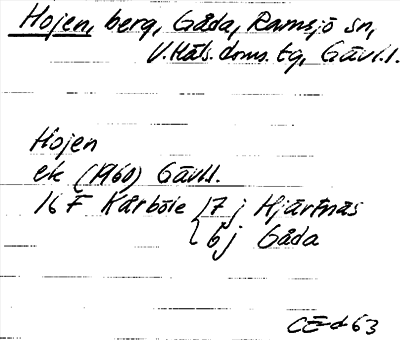 Hojen, berg, Gåda, Ramsjö sn,
V.Häls. doms. tg, Gävl.l.
Hojen
ek (1960) Gävl.l.
16 F Kårböle 7 j Hjärtnäs
6 j Gåda